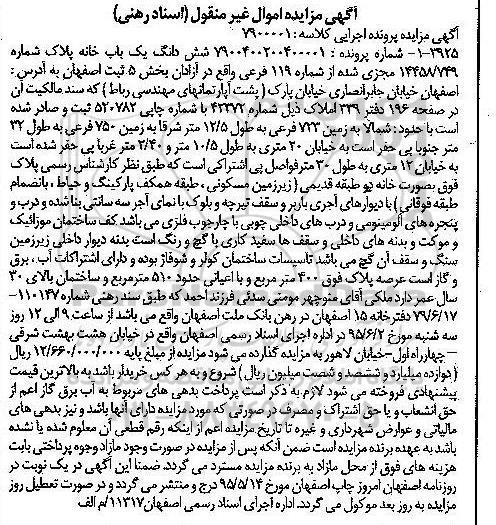 آگهی مزایده اموال غیر منقول (اسناد رهنی)
آگهی مزایده پرونده اجرایی کلاسه: ۷۹۰۰۰۰۱
۱-۳۹۲۵- شماره پرونده : ۷۹۰۰۴۰۰۲۰۰۴۰۰۰۰۱ شش دانگ یک باب خانه پلاک شماره
۱۴۴۵۸/۷۴۹ مجزی شده از شماره ۱۱۹ فرعی واقع در آزادان بخش ۵ ثبت اصفهان به آدرس :
اصفهان خیابان جابرانصاری خیابان پارک ( پشت آپارتمانهای مهندسی رباط ) که سند مالکیت آن
در صفحه ۱۹۶ دفتر ۳۳۹ املاک ذیل شماره ۴۲۳۷۲ با شماره چاپی ۵۲۰۷۸۲ ثبت و صادر شده
است با حدود: شمالا به زمین ۷۲۳ فرعی به طول ۱۲/۵ متر شرقا به زمین ۷۵۰ فرعی به طول ۳۲
متر جنوبا پی حفر است به خیابان ۲۰ متری به طول ۱۰/۵ متر و ۳/۴۰ متر غربا پی حفر شده است
به خیابان ۱۲ متری به طول ۳۰ مترفواصل پی اشتراکی است که طبق نظر کارشناس رسمی پلاک
فوق بصورت خانه دو طبقه قدیمی ( زیرزمین مسکونی ، طبقه همکف پارکینگ و حیاط ، بانضمام
طبقه فوقانی ) با دیوارهای آجری باربر و سقف تیرچه و بلوک با نمای آجر سه سانتی بنا شده و درب و
پنجره های آلومینیومی و درب های داخلی چوبی با چارچوب فلزی می باشد کف ساختمان موزائیک
و موکت و بدنه های داخلی و سقف ها سفید کاری با گچ و رنگ است بدنه دیوار داخلی زیرزمین
سنگ و سقف آن گچ می باشد تاسیسات ساختمان کولر و شوفاژ بوده و دارای اشتراکات آب ، برق
و گاز است عرصه پلاک فوق ۴۰۰ متر مربع و با اعیانی حدود ۵۱۰ مترمربع و ساختمان بالای ۳۰
سال عمر دارد ملکی آقای منوچهر مومنی سدئی فرزند احمد که طبق سند رهنی شماره ۱۱۰۱۴۷-
۷۹/۶/۱۷ دفترخانه ۱۵ اصفهان در رهن بانک ملت اصفهان واقع می باشد از ساعت ۹ الی ۱۲ روز
سه شنبه مورخ ۹۵/۶/۲ در اداره اجرای اسناد رسمی اصفهان واقع در خیابان هشت بهشت شرقی
– چهارراه اول–خیابان لاهور به مزایده گذارده می شود مزایده از مبلغ پایه ۱۲/۶۶۰/۰۰۰/۰۰۰ ریال
( دوازده میلیارد و ششصد و شصت میلیون ریال ) شروع و به هر کس خریدار باشد به بالاترین قیمت
پیشنهادی فروخته می شود لازم به ذکر است پرداخت بدهی های مربوط به آب برق گاز اعم از
حق انشعاب و یا حق اشتراک و مصرف در صورتی که مورد مزایده دارای آنها باشد و نیز بدهی های
مالیاتی و عوارض شهرداری و غیره تا تاریخ مزایده اعم از اینکه رقم قطعی آن معلوم شده یا نشده
باشد به عهده برنده مزایده است ضمن آنکه پس از مزایده در صورت وجود مازاد وجوه پرداختی بابت
هزینه های فوق از محل مازاد به برنده مزایده مسترد می گردد ضمنا این آگهی در یک نوبت در
روزنامه اصفهان امروز چاپ اصفهان مورخ ۹۵/۵/۱۴ درج و منتشر می گردد و در صورت تعطیل روز
مزایده به روز بعد موکول می گردد. اداره اجرای اسناد رسمی اصفهان ۱۱۳۱۷/م الف